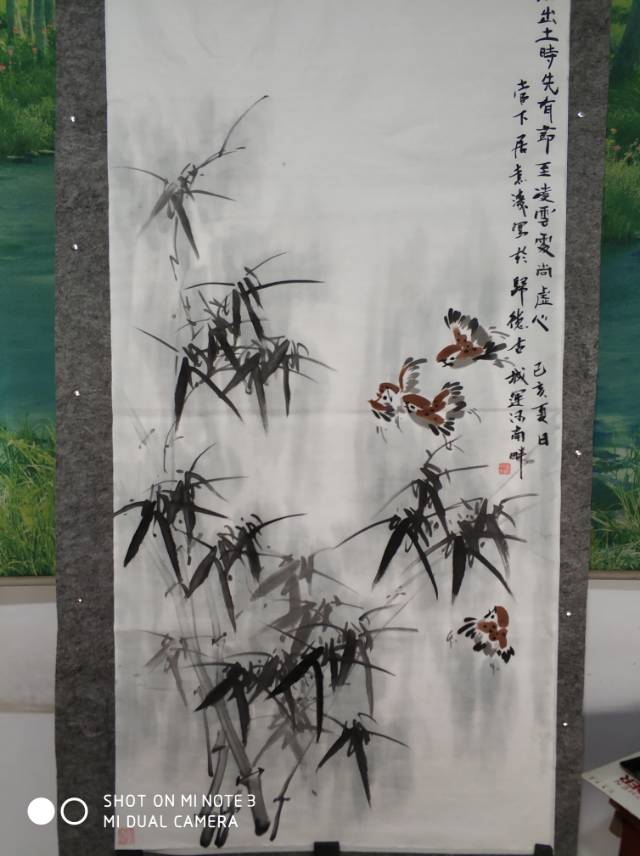 出土時先有節至凌雲處尚虛心 己亥夏日
居袁淩寫於歸德古城運河南畔
SHOT ON MI NOTE 3
MI DUAL CAMERA